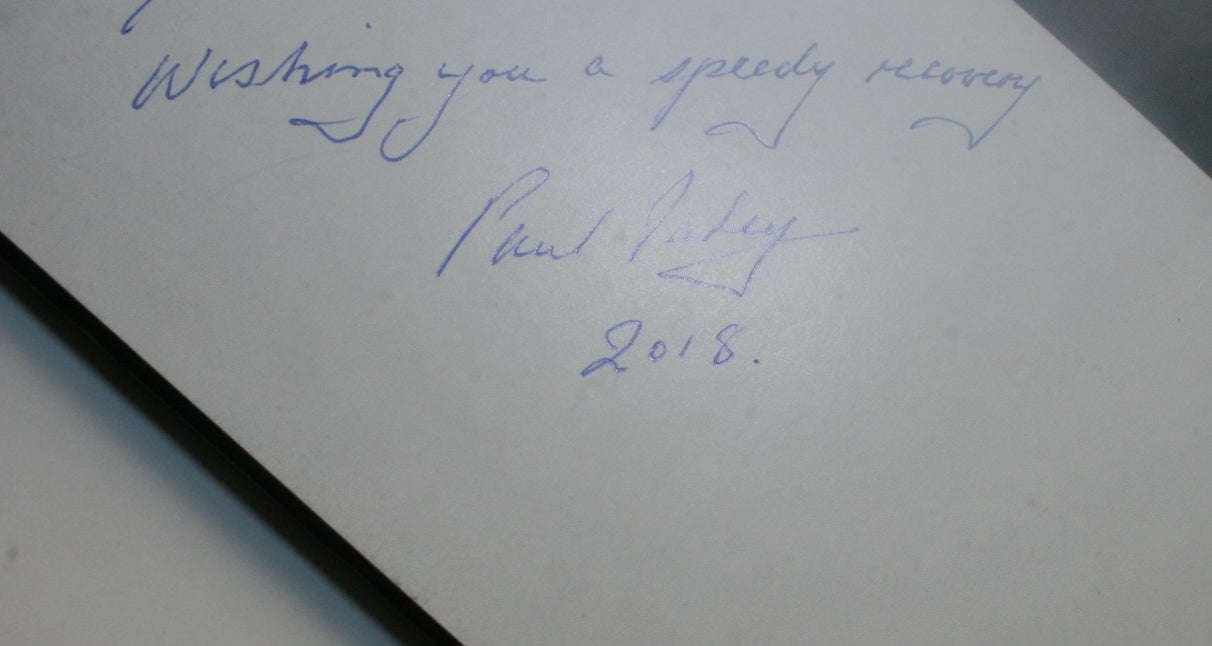 Wishing you a speedy recovery
Paul
2018.